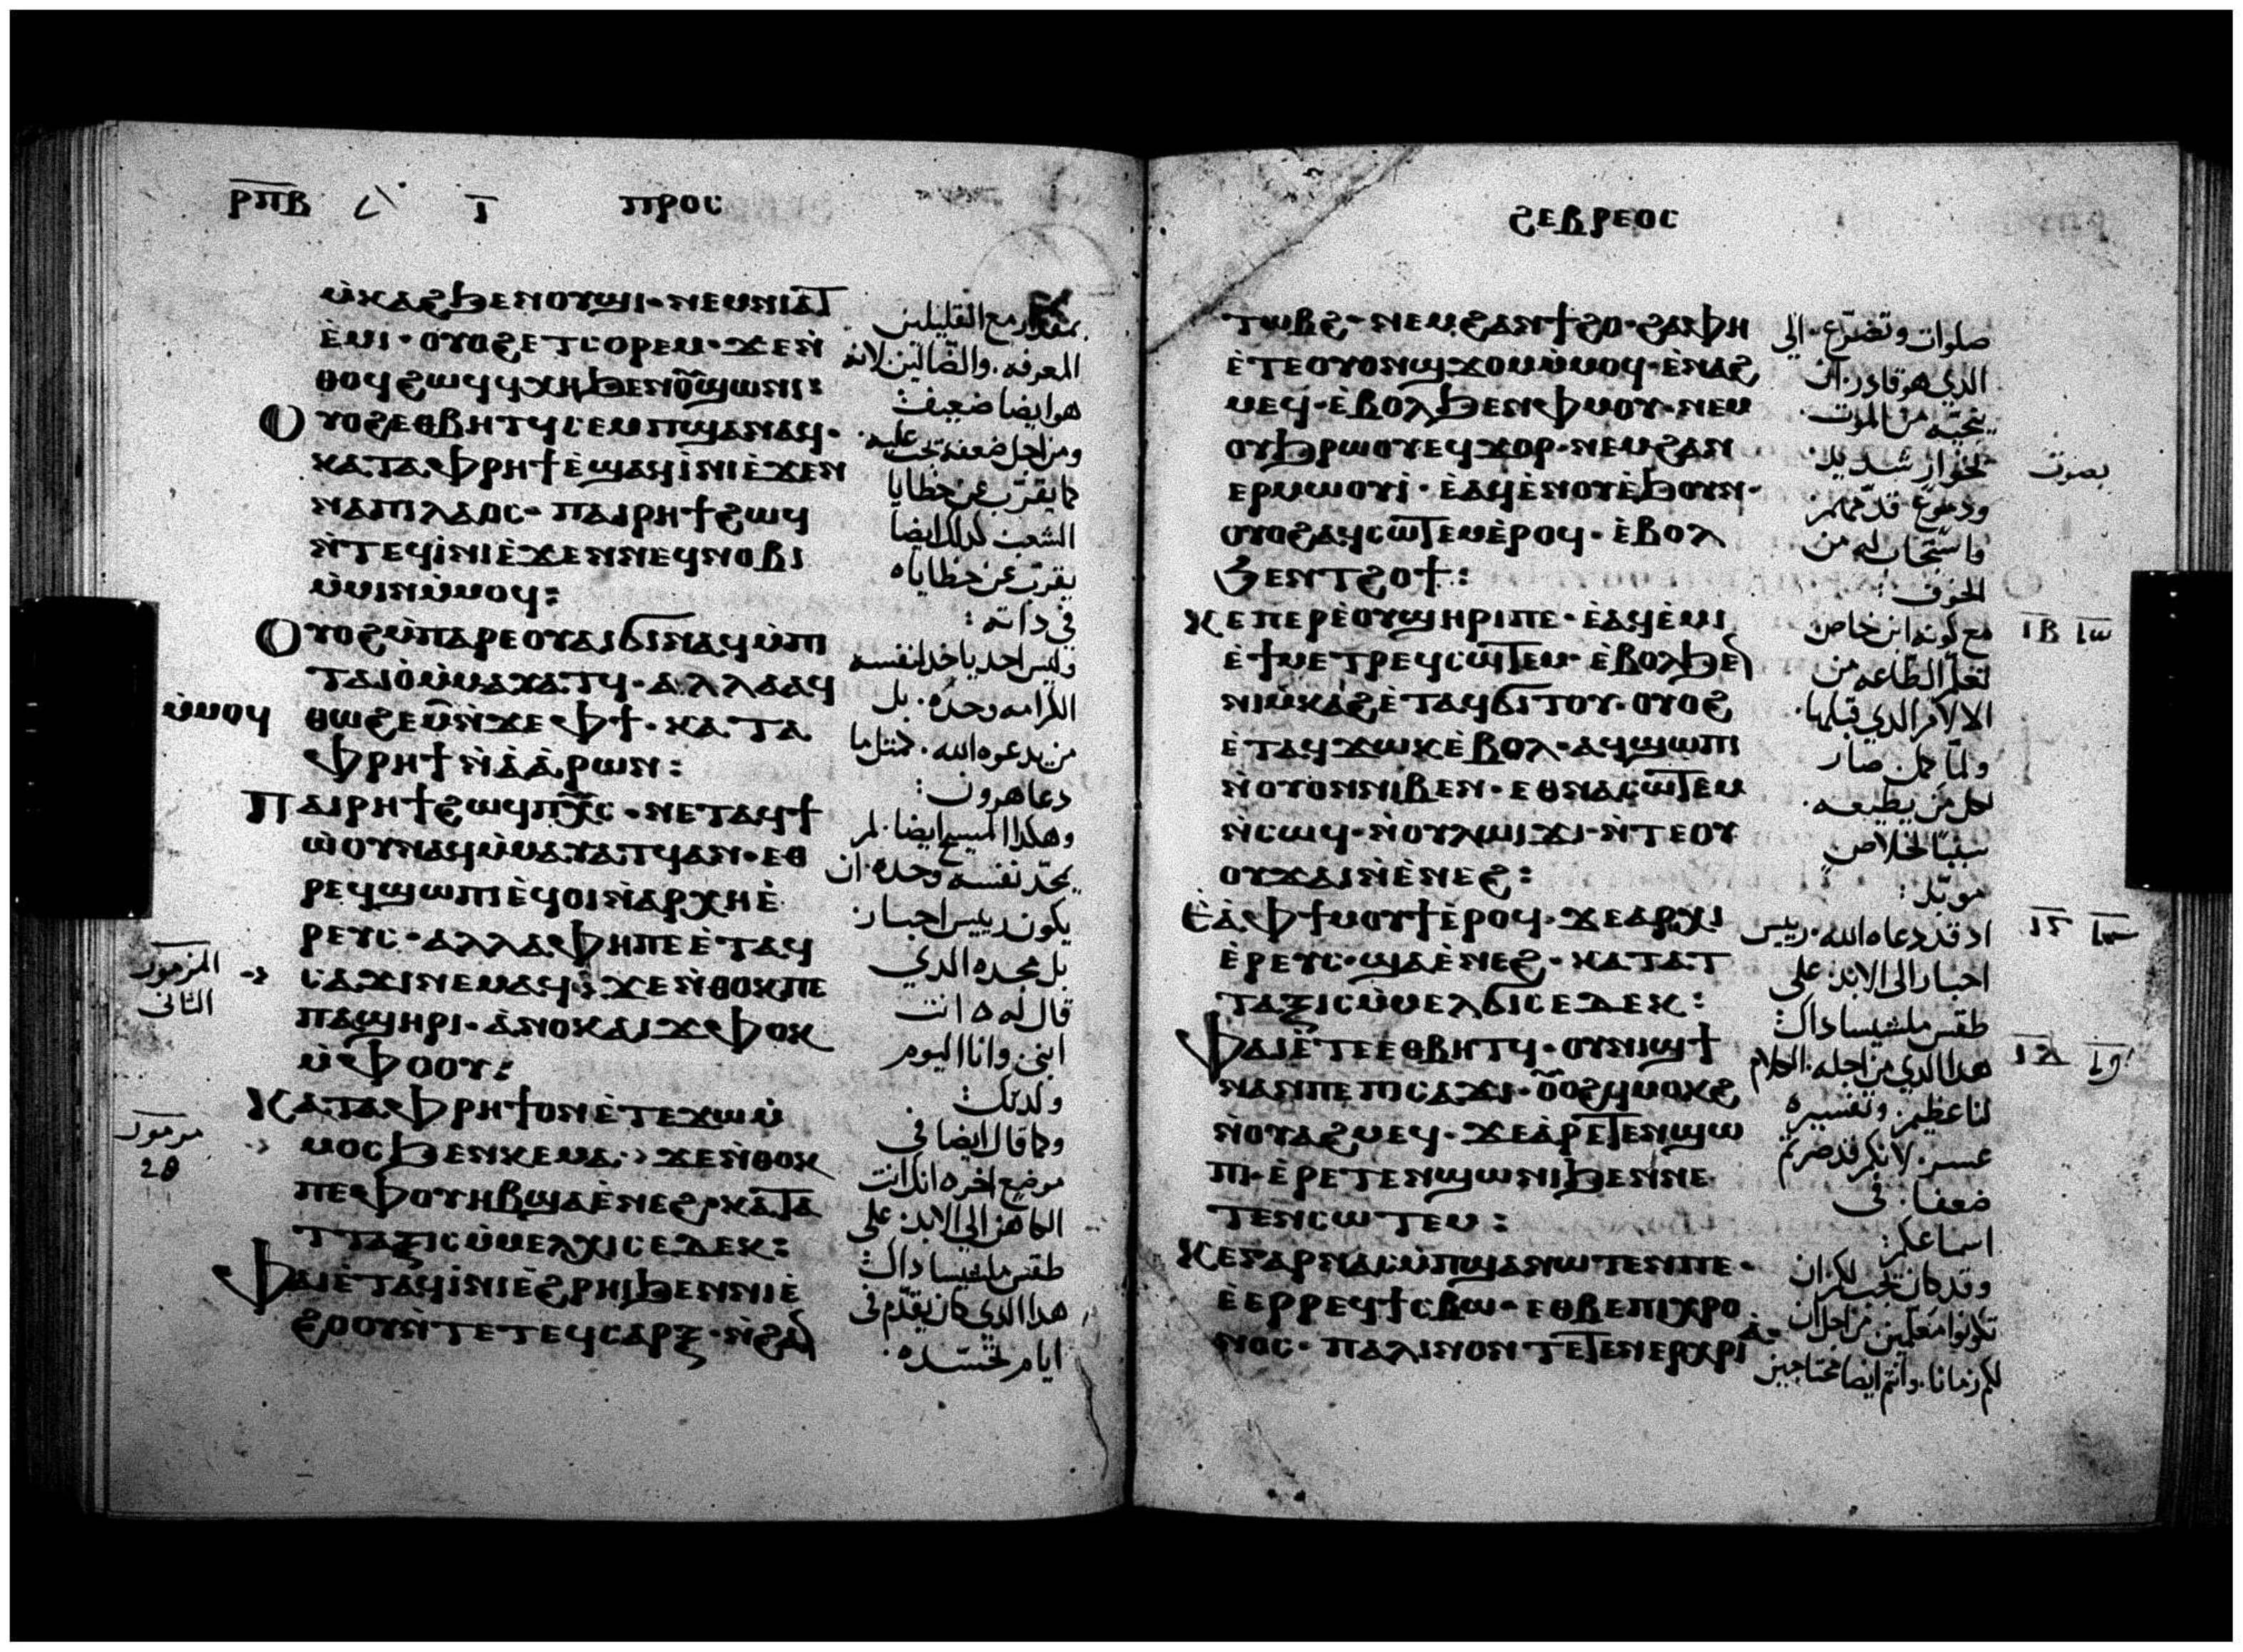 ⲣⲡⲃ ⲓ ⲡⲣⲟⲥ
ⲙ̀ⲕⲁϩϧⲉⲛⲟⲩϣⲓ · ⲛⲉⲙⲛⲓⲁⲧ
ⲉ̀ⲙⲓ · ⲟⲩⲟϩⲉⲧⲥⲟⲣⲉⲙ · ϫⲉⲛ̀
ⲑⲟϥϩⲱϥϥⲭⲏϧⲉⲛⲟⲩϣⲱⲛⲓ :
ⲟⲩⲟϩⲉⲑⲃⲏⲧϥⲥⲉⲙⲡϣⲁⲛⲁϥ ·
ⲕⲁⲧⲁⲫⲣⲏϯⲉ̀ϣⲁϥⲓ̀ⲛⲓⲉ̀ϫⲉⲛ
ⲛⲁⲡⲓⲗⲁⲟⲥ · ⲡⲁⲓⲣⲏϯϩⲱϥ
ⲛ̀ⲧⲉϥⲓ̀ⲛⲓⲉ̀ϫⲉⲛⲛⲉϥⲛⲟⲃⲓ
ⲙ̀ⲙⲓⲛⲙ̀ⲙⲟϥ :
ⲟⲩⲟϩⲙ̀ⲡⲁⲣⲉⲟⲩⲁⲓϭⲓⲛⲁϥⲙ̀ⲡⲓ
ⲧⲁⲓⲟ̀ⲙ̀ⲙⲁⲩⲁⲧϥ · ⲁⲗⲗⲁⲁϥ
ⲙ̀ⲙⲟϥ
ⲑⲱϩⲉⲙⲛ̀ϫⲉⲫϯ · ⲕⲁⲧⲁ
ⲫⲣⲏϯⲛ̀ⲁ̀ⲁ̀ⲣⲱⲛ :
ⲡⲁⲓⲣⲏϯϩⲱϥⲡⲭ̅ⲥ · ⲛⲉⲧⲁϥϯ
ⲱ̀ⲟⲩⲛⲁϥⲙ̀ⲙⲁⲩⲁⲧϥⲁⲛ · ⲉⲑ
ⲣⲉϥϣⲱⲡⲓⲉ̀ϥⲟⲓⲛ̀ⲁⲣⲭⲏⲉ̀
ⲣⲉⲩⲥ · ⲁⲗⲗⲁⲫⲏⲡⲉⲉ̀ⲧⲁϥ
ⲥⲁϫⲓⲛⲉⲙⲁϥ · ϫⲉⲛ̀ⲑⲟⲕⲡⲉ
ⲡⲁϣⲏⲣⲓ · ⲁ̀ⲛⲟⲕⲁⲓϫⲫⲟⲕ
ⲙ̀ⲫⲟⲟⲩ :
ⲕⲁⲧⲁⲫⲣⲏϯⲟⲛⲉ̀ⲧⲉϫⲱⲙ̀
ⲙⲟⲥϧⲉⲛⲕⲉⲙⲁ · ϫⲉⲛ̀ⲑⲟⲕ
ⲡⲉⲫⲟⲩⲏⲃϣⲁⲉ̀ⲛⲉϩ · ⲕⲁⲧⲁ
ⲧⲧⲁⲝⲓⲥⲙ̀ⲙⲉⲗⲭⲓⲥⲉⲇⲉⲕ :
ⲫⲁⲓⲉ̀ⲧⲁϥⲓ̀ⲛⲓⲉ̀ϩⲣⲏⲓϧⲉⲛⲛⲓⲉ̀
ϩⲟⲟⲩⲛ̀ⲧⲉⲧⲉϥⲥⲁⲣⲝ · ⲛ̀ϩⲁⲛ
مع القليلين
المعرفه . والضالين لانه
هو ايضا ضعيف
ومن اجل ضعفه تجب عليه
كما يقرب عن خطايا
الشعب كذلك ايضا
يقرب عن خطاياه
في ذاته :
وليس احد ياخذ لنفسه
الكرامه وحده . بل
من يدعوه الله . كمثل ما
دعا هرون :
وهكذا المسيح ايضا . لم
يمجد نفسه وحده . ان
يكون رييس احبار
بل مجده الذي
قال له انت
ابني وانا اليوم
ولدتك :
وكما قال ايضا في
موضع اخر انك انت
الكاهن الى الابد . على
طقس ملشيساداك
هذا الذي كان يقدم في
ايام تجسده .
المزمور
الثاني
مزمور
ϩⲉⲃⲣⲉⲟⲥ
ⲧⲱⲃϩ · ⲛⲉⲙϩⲁⲛϯϩⲟ · ϩⲁⲫⲏ
ⲉ̀ⲧⲉⲟⲩⲟⲛϣϫⲟⲙⲙ̀ⲙⲟϥ · ⲉ̀ⲛⲁϩ
ⲙⲉϥ · ⲉ̀ⲃⲟⲗϧⲉⲛⲫⲙⲟⲩ · ⲛⲉⲙ
ⲟⲩϧⲣⲱⲟⲩⲉϥϫⲟⲣ · ⲛⲉⲙϩⲁⲛ
ⲉⲣⲙⲱⲟⲩⲓ̀ · ⲉ̀ⲁϥⲉ̀ⲛⲟⲩⲉ̀ϧⲟⲩⲛ ·
ⲟⲩⲟϩⲁϥⲥⲱⲧⲉⲙⲉ̀ⲣⲟϥ · ⲉ̀ⲃⲟⲗ
ϧⲉⲛⲧϩⲟϯ :
ⲕⲉⲡⲉⲣⲉ̀ⲟⲩϣⲏⲣⲓⲡⲉ · ⲉ̀ⲁϥⲉ̀ⲙⲓ
ⲉ̀ϯⲙⲉⲧⲣⲉϥⲥⲱⲧⲉⲙ · ⲉ̀ⲃⲟⲗϧⲉⲛ
ⲛⲓⲙ̀ⲕⲁϩⲉ̀ⲧⲁϥϭⲓⲧⲟⲩ · ⲟⲩⲟϩ
ⲉ̀ⲧⲁϥϫⲱⲕⲉ̀ⲃⲟⲗ · ⲁϥϣⲱⲡⲓ
ⲛ̀ⲟⲩⲟⲛⲛⲓⲃⲉⲛ · ⲉⲑⲛⲁⲥⲱⲧⲉⲙ
ⲛ̀ⲥⲱϥ · ⲛ̀ⲟⲩⲗⲱⲓϫⲓ · ⲛ̀ⲧⲉⲟⲩ
ⲟⲩϫⲁⲓⲛ̀ⲉ̀ⲛⲉϩ :
ⲉ̀ⲁ̀ⲫϯⲙⲟⲩϯⲉ̀ⲣⲟϥ · ϫⲉⲁⲣⲭⲓ
ⲉ̀ⲣⲉⲩⲥ · ϣⲁⲉ̀ⲛⲉϩ · ⲕⲁⲧⲁⲧ
ⲧⲁⲝⲓⲥⲙ̀ⲙⲉⲗϭⲓⲥⲉⲇⲉⲕ :
ⲫⲁⲓⲉ̀ⲧⲉⲉⲑⲃⲏⲧϥ · ⲟⲩⲛⲓϣϯ
ⲛⲁⲛⲡⲉⲡⲓⲥⲁϫⲓ · ⲟⲩⲟϩϥⲙⲟⲕϩ
ⲛ̀ⲟⲩⲁϩⲙⲉϥ · ϫⲉⲁ̀ⲣⲉⲧⲉⲛϣⲱ
ⲡⲓ · ⲉ̀ⲣⲉⲧⲉⲛϣⲱⲛⲓϧⲉⲛⲛⲉ
ⲧⲉⲛⲥⲱⲧⲉⲙ :
ⲕⲉⲅⲁⲣⲛⲁⲥⲙ̀ⲡϣⲁⲛⲱⲧⲉⲛⲡⲉ ·
ⲉ̀ⲉⲣⲣⲉϥϯⲥⲃⲱ · ⲉⲑⲃⲉⲡⲓⲭⲣⲟ
ⲛⲟⲥ · ⲡⲁⲗⲓⲛⲟⲛⲧⲉⲧⲉⲛⲉⲣⲭⲣⲓⲁ ·
صلوات وتضرع . الى
الذي هو قادر . ان
ينجيه من الموت .
بخوار شديد
بصوت
ودموع قدمهم
فاستجاب له من
الخوف :
مع كونه ابن خاص
تعلم الطاعه من
الالام الذي قبلها .
ولما كمل صار
لكل من يطيعه .
سببا لخلاص
موبد :
اذ قد دعاه الله . رييس
احبار الى الابد . على
طقس ملشيساداك
هذا الذي من اجله . الكلام
لنا عظيم . وتفسيره
عسر . لانكم قد صرتم
ضعفا . في
اسماعكم :
وقد كان تجب لكم ان
تكونوا معلمين من اجل ان
لكم زمانا . وانتم ايضا محتاجين
ⲓⲃ
ⲓⲅ
ⲓⲇ